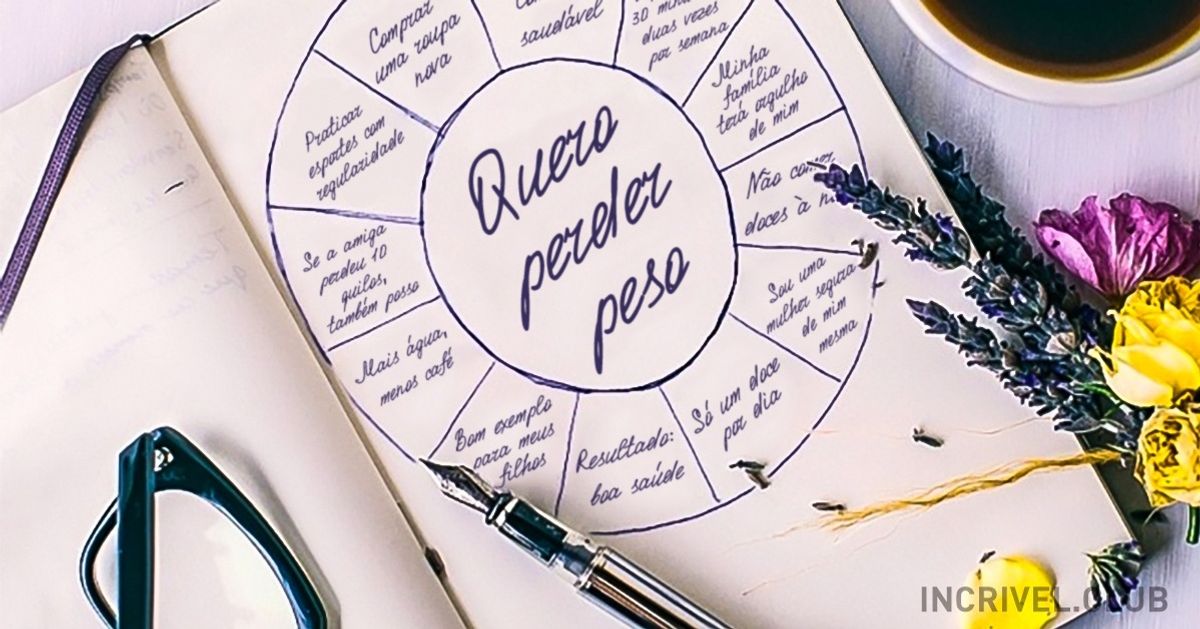 Comprar
uma roupa
nova
saudável
30
duas vezes
por semana
Minha
família
terá orgulho
de mim
Não
doces à
Sou uma
mulher segura
de mim
mesma
Só um doce
por dia
Resultado:
boa saúde
Bom exemplo
para meus
filhos
Mais água,
menos café
Se a amiga
perdeu 10
quilos,
também posso
Praticar
esportes com
regularidade
Quero
perder
peso
INCRIVEL.CLUB